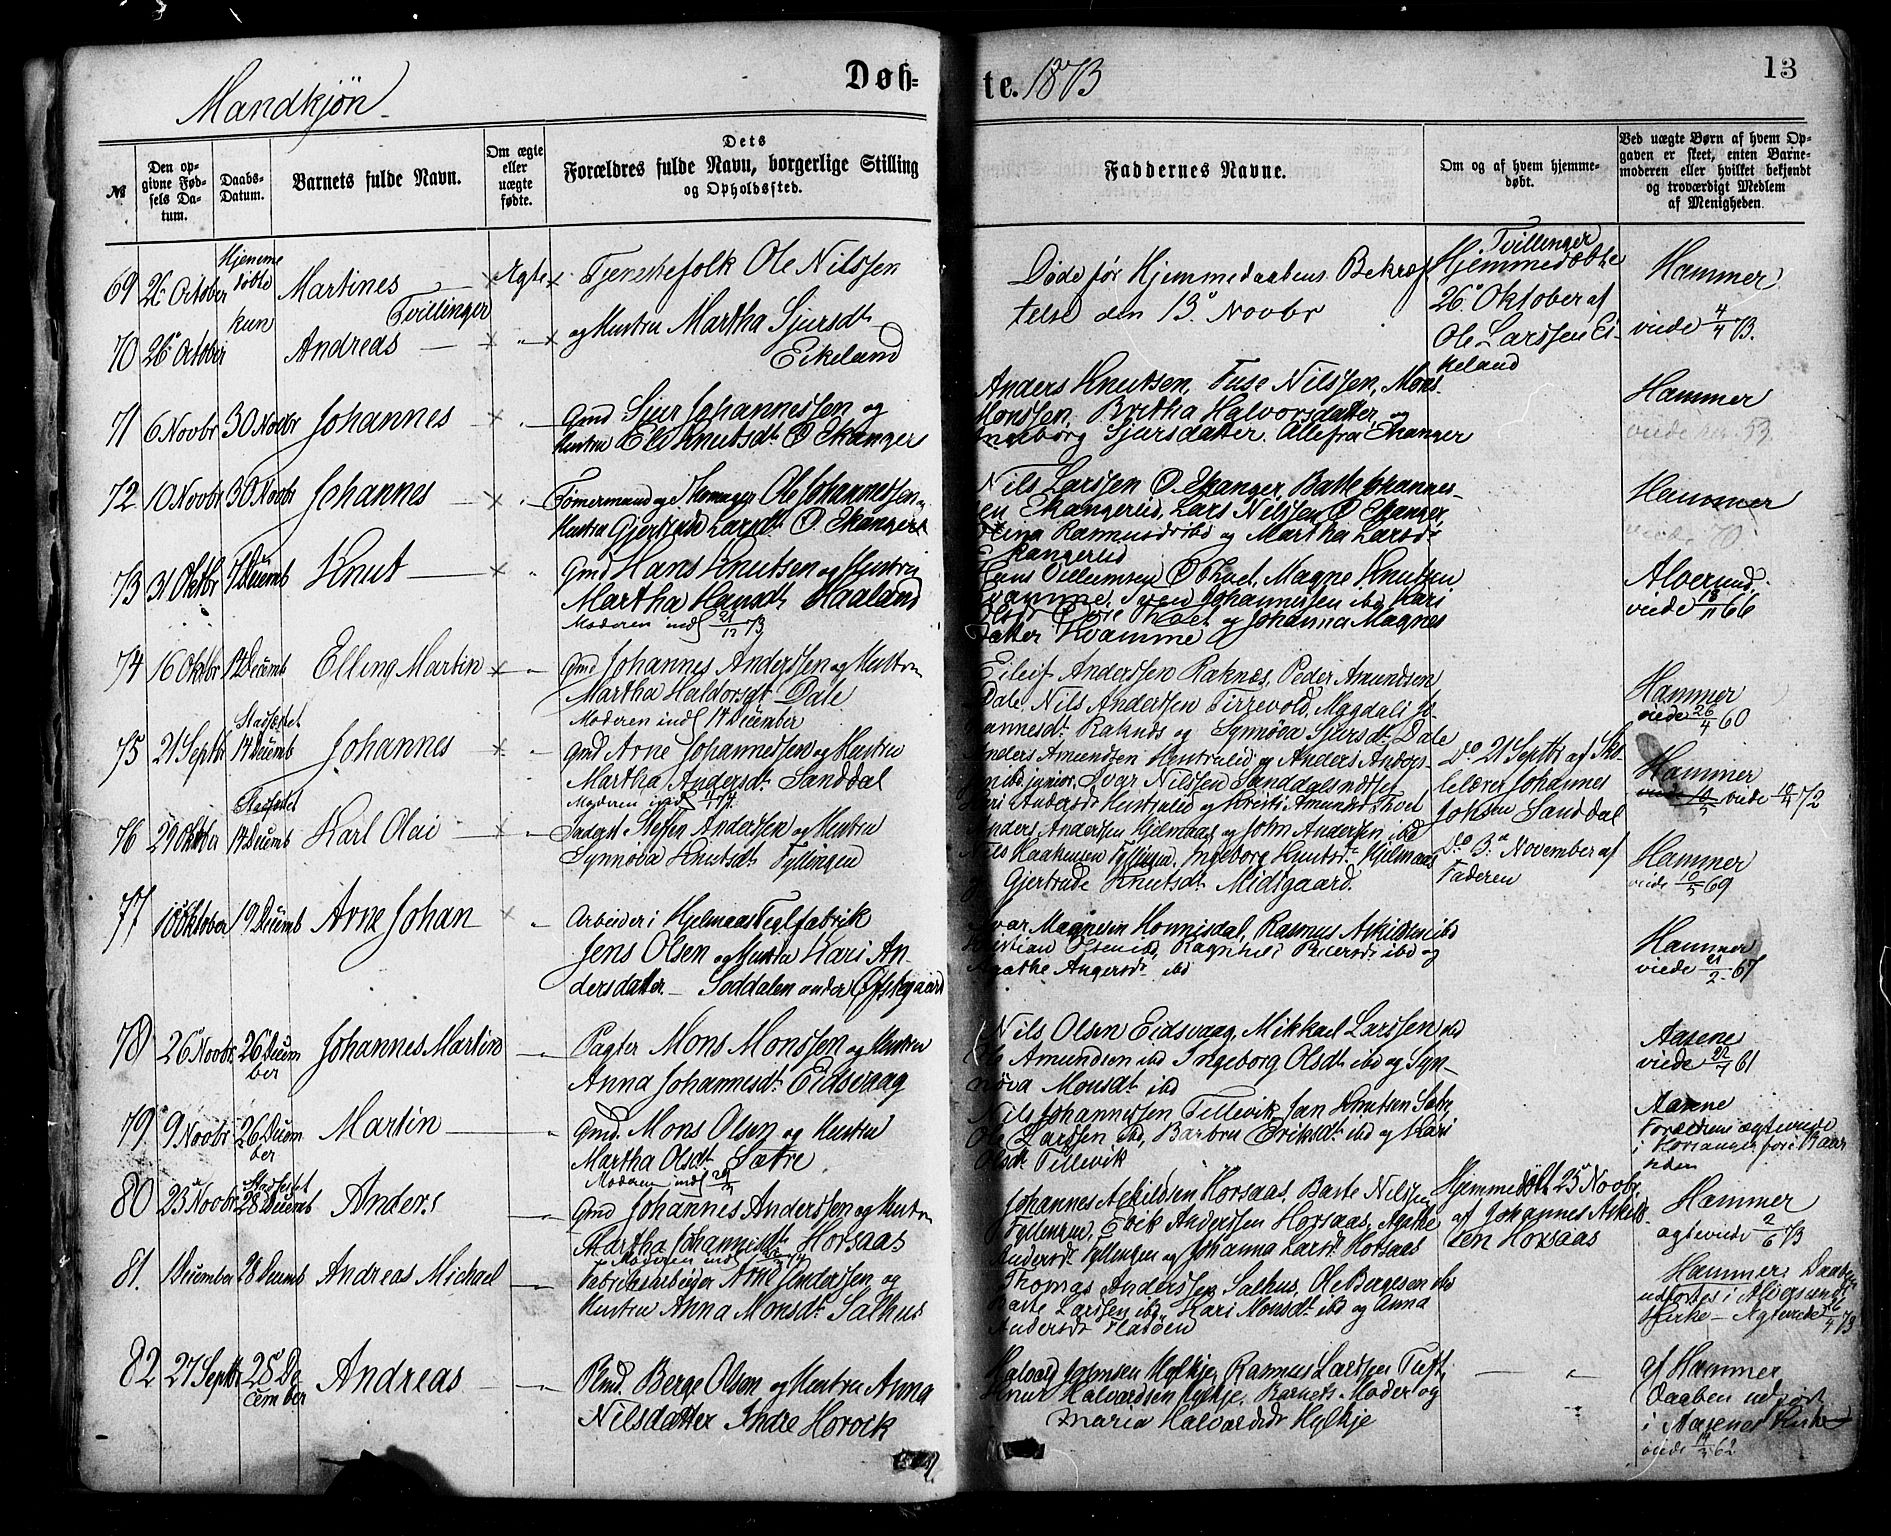 Mandkjön
Døb-
te. 1873
13
№
Den op-
givne Fød-
sels Da-
tum.
Daabs-
Datum.
Barnets fulde Navn.
Om ægte
eller
uægte
fødte.
Dets
Forældres fulde Navn, borgerlige Stilling
og Opholdssted.
Faddernes Navne.
Om og af hvem hjemme-
døbt.
Ved uægte Børn af hvem Op-
gaven er skeet, enten Barne-
moderen eller hvilket bekjendt
og troværdigt Medlem
af Menigheden.
69 26 October Hjemme
døbte
kun
Martines
Tvillinger
Ægte
Tjenestefolk Ole Nilssen
og Hustru Martha Sjursdt
Eikeland
Døde før Hjemmedaabens Bekræf
telse den 13 Novbr
Tvillinger
Hjemmedøbte
26 Oktober af
Ole Larssen Ei-
keland
Hammer
viede 4/4 73.
70 26 October Andreas
71 6 Novbr 30 Novbr Johannes
Gmd Sjur Johannessen og
Hustru Eli Knutsdt Ø. Ekanger
Anders Knutsen, Tuse Nilssen, Mons
Monssen, Britha Halvorsdatter og
Ingeborg Sjursdatter. Alle fra Ekanger
Hammer
72 10 Novbr 30 Novbr Johannes
Tömermand og Ole Johannessen og
Hustru Gjertrud Larsdt Ø. Ekanger
Nils Larssen Ø. Ekanger, Baste Johannes-
en Ekangerlid, Lars Nilssen Ø Ekanger
Rasmusdt ibd og Martha Larsdt
Ekangerlid
Hammer
viede 70
73 31 Oktbr 7 Decemb Knut
Gmd Hans Knutsen og Hustru
Martha Hansdt Haaland
Moderen indl 21/12 73
Hans Villumsen Ø Thoet, Magne Knutsen
Kvamme, Johannessen ibd Kari
Thoet og Johanna Magnes
datter Kvamme
Alversund
viede 18/11 66
74 16 Oktbr 14 Decemb Elling Martin
Gmd Johannes Anderssen og Hustru
Martha Haldorsdt Dale
Moderen indl 14 December
Eileif Anderssen Raknes, Peder Amundsen
Dale Nils Andersen Tirrevold, Magdali Jo-
hannesdt Raknes og Synnöva Sjursdt Dale
Hammer
viede 26/4 60
75 21 Septbr Stadfæstet
14 Decemb Johannes
Gmd Arne Johannessen og Hustru
Martha Andersdt Sanddal
Moderen indl
Anders Amundsen Hentralid og Anders
ibd junior, Ivar Nilssen Sanddalsnæset
Kari Andersdt Hentralid og Kristi Amundsdt Thoet
Do 21 Septbr af Sko-
lelærer Johannes
Johssen Sanddal
Hammer
viede 72
76 29 Oktbr Stadfæstet
14 Decemb Karl Olai
Inderst Steffen Anderssen og Hustru
Synnöva Knutsdt Fyllingen
Anders Anderssen Hjelmaas og John Andersen ibd
Nils Haakensen Fyllingen, Ingeborg Knutsdt Hjelmaas
og Gjertrude Knutsdt Midtgaard.
Do 3 November af
Faderen
Hammer
viede 10/5 69
77 18 Oktober 19 Decemb Arne Johan
Arbeider i Hjelmaas Teglfabrik
Jens Olsen og Hustru Kari An-
dersdatter – Soddalen under Öfstegaard
Ivar Magnesen Honnisdal, Rasmus Askildsen ibd
Kristian Olsen ibd, Ragnhild Peersdt ibd og
Agathe Angersdt ibd
Hammer
viede 21/2 67
78 26 Novbr 26 Decem
ber Johannes Martin
Pagter Mons Monssen og Hustru
Anna Johannesdt Eidsvaag
Nils Olsen Eidsvaag, Mikkael Larssen ibd
Ole Amundsen ibd Ingeborg Olsdt ibd og Syn-
növa Monsdt ibd
Aasene
viede 61
79 9 Novbr 26 Decem
ber Martin
Gmd. Mons Olsen og Hustru
Martha Olsdt Sætre
Moderen indl
Nils Johannessen Tellevik, Jan Knutsen Sætre,
Ole Larssen ibd, Barbru Eriksdt ibd og Kari
Olsdt Tellevik
Aasene
Forældrene ægteviede
i for i Kaar
siden
80 23 Novbr Stadfæstet
28 Decemb Anders
Gmd Johannes Anderssen og Hustru
Martha Johannesdt Horsaas
Moderen indl
Johannes Askildsen Horsaas, Baste Nilssen
Fyllingen, Erik Anderssen Horsaas, Agathe
Andersdt Fyllingen og Johanna Larsdt Horsaas
Hjemmedöbt 25 Novbr
af Johannes Askild-
sen Horsaas
Hammer
ægteviede 2/6 73
81. 1 December 28 Decemb Andreas Michael
Fabrikkarbeider Arne Enderssen og
Hustru Anna Monsdt Salhus
Thomas Anderssen Salhus, Ole Bargesen ibd
Baste Larssen ibd, Kari Monsdt ibd og Anna
Andersdt Flatöen
Hammer. Daaben
udfört i Alversund
Kirke – Ægteviede 26/4 73
82 27 Septbr 28 De
cember Andreas
Plmd. Berge Olsen og Hustru Anna
Nilsdatter Indre Horvik
Halvard Hylkje, Rasmus Larssen Tuft
Knut Halvardsen Hylkje, Barnets Moder og
Maria Halvardsdt Hylkje
af Hammer
Daaben udfört
i Aasene Kirke
viede 62